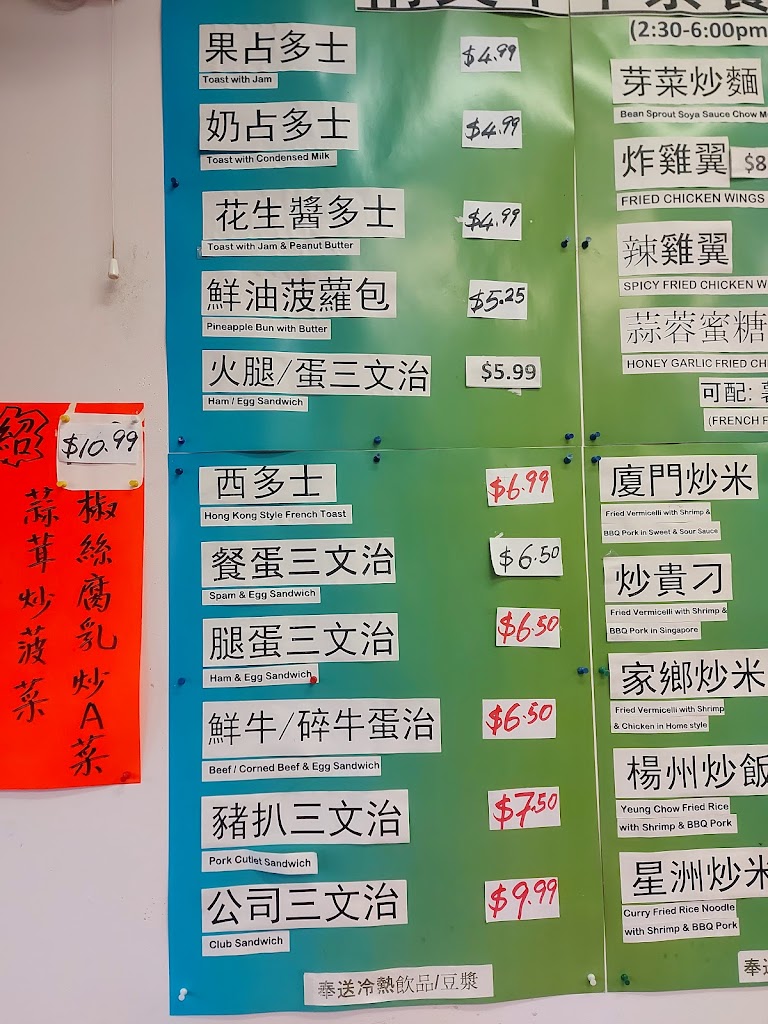 果占多士
$4.99
Toast with Jam
奶占多士
$4.99
Toast with Condensed Milk
花生醬多士
$4.99
Toast with Jam & Peanut Butter
鮮油菠蘿包
$5.25
Pineapple Bun with Butter
火腿/蛋三文治
$5.99
Ham / Egg Sandwich
西多士
$6.99
Hong Kong Style French Toast
餐蛋三文治
$6.50
Spam & Egg Sandwich
腿蛋三文治
$6.50
Ham & Egg Sandwich
鮮牛/碎牛蛋治
$6.50
Beef / Corned Beef & Egg Sandwich
豬扒三文治
$7.50
Pork Cutlet Sandwich
公司三文治
$9.99
Club Sandwich
奉送冷熱飲品/豆漿
(2:30-6:00pm
芽菜炒麵
Bean Sprout Soya Sauce Chow
炸雞翼
$8
FRIED CHICKEN WINGS
辣雞翼
SPICY FRIED CHICKEN
蒜蓉蜜糖
HONEY GARLIC FRIED
可配:
(FRENCH
廈門炒米
Fried Vermicelli with Shrimp &
BBQ Pork in Sweet & Sour Sauce
炒貴刁
Fried Vermicelli with Shrimp &
BBQ Pork in Singapore
家鄉炒米
Fried Vermicelli with Shrimp
& Chicken in Home style
楊州炒飯
Yeung Chow Fried Rice
with Shrimp & BBQ Pork
星洲炒米
Curry Fried Rice Noodle
with Shrimp & BBQ Pork
奉
紹
$10.99
椒絲腐乳炒A菜
蒜茸炒菠菜